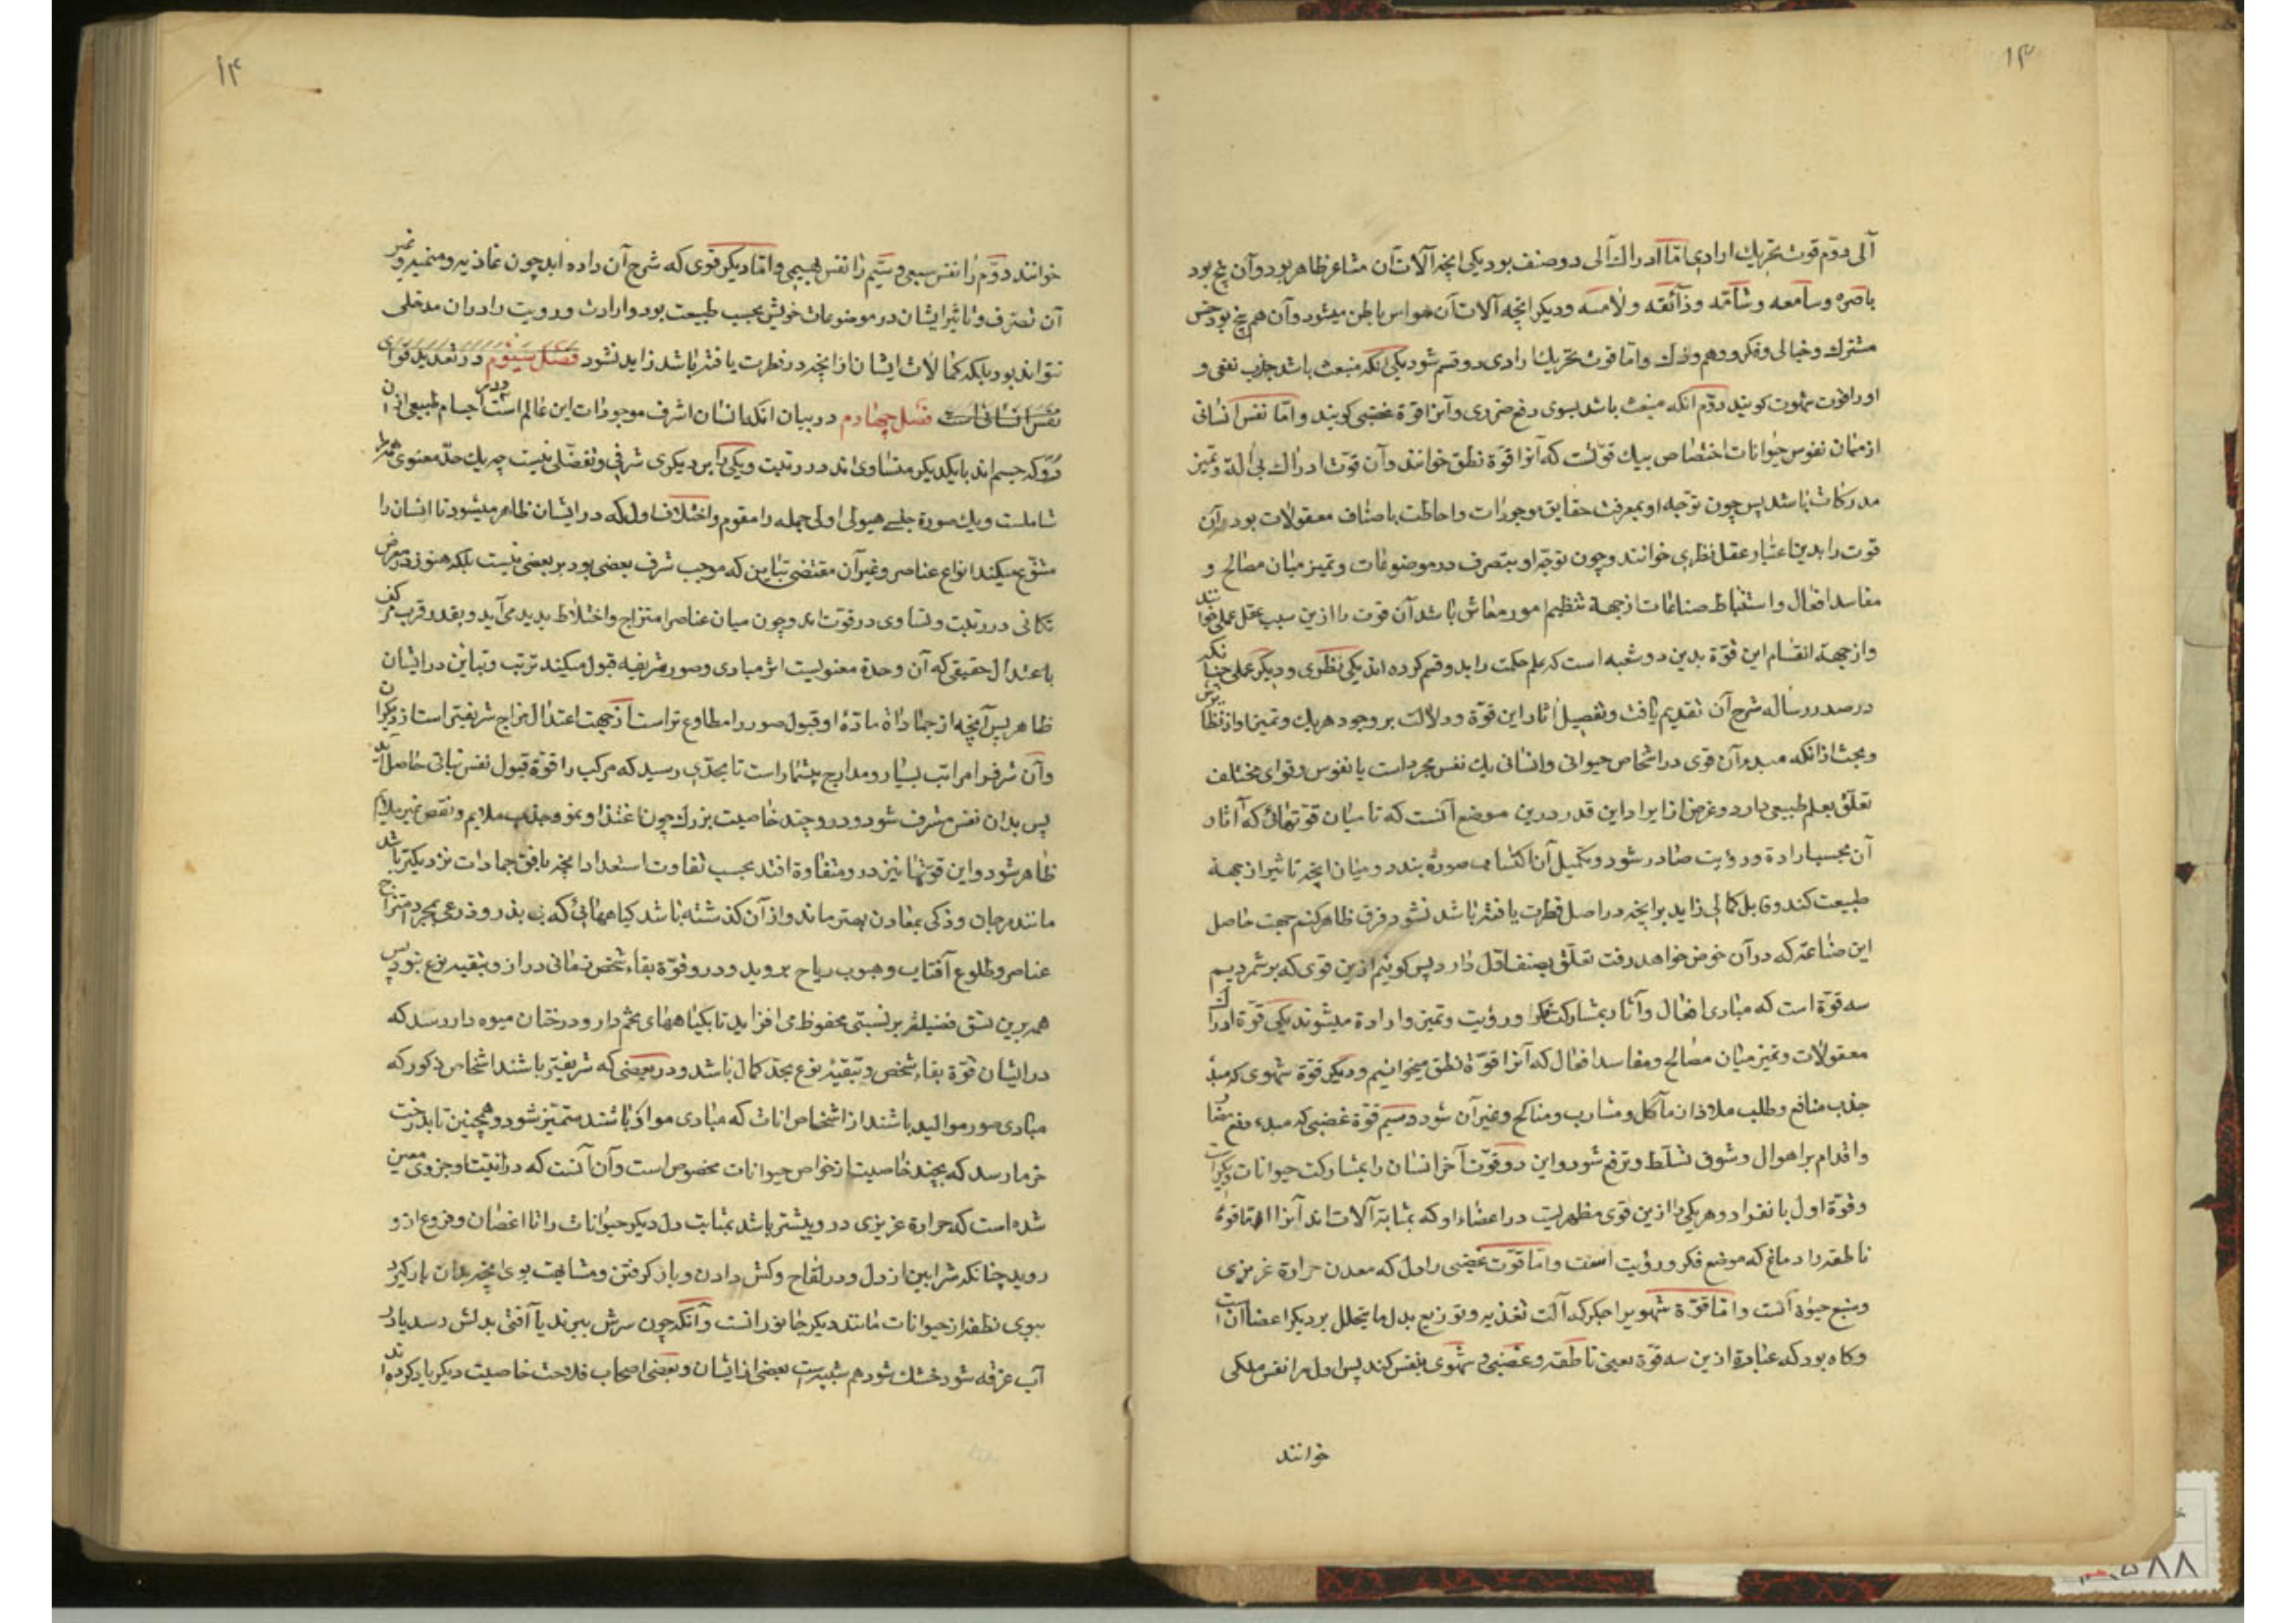 ۱۳
آلی دوم قوت تحریك ارادی اما ادراك آلی دو صنف بود یکی انچه آلات آن مشاعر ظاهر بود و آن پنج بود
باصره و سامعه و شامّه و ذائقه و لامسه و دیکر انچه آلات آن حواس باطن میشود و آن هم پنج بود حس
مشترك و خیالی و فکر و وهم و ذکر و اما قوت تحریك ارادی دو قسم شود یکی انکه منبعث باشد جذب نفعی و
او را قوت شهوت کویند دوم انکه منبعث باشد بسوی دفع ضرری و آنرا قوة غضبی کویند و امّا نفس انسانی
از میان نفوس حیوانات اختصاص بیك قوتست که آنرا قوّة نطق خوانند و آن قوت ادراك بی آلة و تمیز
مدرکات باشد پس چون توجّه او بمعرفت حقایق موجودات و احاطت باصناف معقولات بود آن
قوت را بدین اعتبار عقل نظری خوانند و چون توجّه او بتصرف در موضوعات و تمیز میان مصالح و
مفاسد افعال و استنباط صناعات از جهة تنظیم امور معاش باشد آن قوت را ازین سبب عقل عملی خوانند
و از جهة انقسام این قوّة بدین دو شعبه است که علم حکمت را بدو قسم کرده اند یکی نظری و دیکر عملی چنانکه
در صدر رساله شرح آن تقدیم یافت و تفصیل اثار این قوّة و دلالت بر وجود هریك و تمیز او از نظایرش
و بحث از انکه مبدء آن قوی در اشخاص حیوانی و انسانی یك نفس مجرد است یا نفوس و قوای مختلف
تعلّق بعلم طبیعی دارد و غرض از ایراد این قدر درین موضع آنست که تا میان قوتهائی که آثار
آن بحسب ارادة و رؤیت صادر شود و تکمیل آن اکتسابی صورة بندد و میان انچه تاثیر از جهة
طبیعت کند و قابل کمالی زاید بر انچه در اصل فطرت یافته باشد نشود فرق ظاهر کنم جهت حاصل
این صناعة که در آن خوض خواهد رفت تعلّق بصنف اوّل دارد پس کوئیم ازین قوی که برشمردیم
سه قوّة است که مبادی افعال و آثار بمشارکت فکر و رؤیت و تمیز و ارادة میشوند یکی قوّة ادراك
معقولات و تمیز میان مصالح و مفاسد افعال که آنرا قوّة نطق میخوانیم و دیکر قوّة شهوی که مبدأ
جذب منافع و طلب ملاذ از مآکل و مشارب و مناکح و غیر آن شود و سیم قوّة غضبی که مبدء دفع مضار
و اقدام بر اهوال و شوق تسلّط و ترفع شود و این دو قوّت آخر انسان را بمشارکت حیوانات دیکر است
و قوّة اول بانفراد و هر یکی را ازین قوی مظهریست در اعضاء او که بمثابة آلات اند آنرا اما قوة
ناطقه را دماغ که موضع فکر و رؤیت است و اما قوّت غضبی را دل که معدن حرارة غریزی
و منبع حیوة است و اما قوّة شهوی را جکر که آلت تغذیه و توزیع بدل ما یتحلل بر دیکر اعضا آن است
و کاه بود که عبارة ازین سه قوّة یعنی ناطقه و غضبی و شهوی بنفس کند پس اول را نفس ملکی
خوانند
۱۴
خوانند دوّم را نفس سبعی و سیّم را نفس بهیمی و امّا دیکر قوی که شرح آن داده آید چون غاذیه و منمیه و غیر
آن تصرّف و تاثیر ایشان در موضوعات خویش بحسب طبیعت بود و ارادت و رویت را در ان مدخلی
نتواند بود بلکه کمالات ایشان از انچه در فطرت یافته باشد زاید نشود فصل سیوم در تعدید قوای
نفس انسانی است فصل چهارم در بیان انکه انسان اشرف موجودات این عالم است اجسام طبیعی از ان
رو که جسم اند بایکدیکر متساوی اند در رتبت و یکی را بر دیکری شرفی و تفضلی نیست چه یك حدّ معنوی همه را
شاملست و یك صورة جنسی هیولی اولی جمله را مقوم و اختلاف اول که در ایشان ظاهر میشود تا ایشان را
متنوّع میکند انواع عناصر و غیر آن مقتضی تباین که موجب شرف بعضی بود بر بعضی نیست بلکه هنوز در معرض
تکافی در رتبت و تساوی در قوت اند و چون میان عناصر امتزاج و اختلاط بدید می آید و بقدر قرب مرکب
باعتدال حقیقی که آن وحدة معنویست اثر مبادی و صور شریفه قبول میکند ترتب و تباین در ایشان
ظاهر پس آنچه از جمادات مادّۀ او قبول صور را مطاوع تر است از جهت اعتدال مزاج شریفتر است از دیکران
و آن شرف را مراتب بسیار و مدارج بیشمار است تا بحدّی رسید که مرکب را قوّة قبول نفس نباتی حاصل آید
پس بدان نفس مشرف شود و درو چند خاصیت بزرك چون اغتذا و نمو و جذب ملایم و نفض غیر ملایم
ظاهر شود و این قوتها نیز در و متفاوة افتد بحسب تفاوت استعداد انچه بافق جمادات نزدیکتر باشد
مانند مرجان و ذکی بمعادن بهتر ماند و از آن کذشته باشد کیاههائی که بی بذر و ذرعی بمجرد امتزاج
عناصر و طلوع آفتاب و هبوب ریاح بروید و درو قوّة بقاء شخص زمانی دراز و تبقیه نوع نبود پس
همه برین نسق فضیلت بر نسبتی محفوظ می افزاید تا بکیاههای تخم دار و درختان میوه دار رسد که
در ایشان قوّة بقاء شخص و تبقیۀ نوع بحد کمال باشد و در بعضی که شریفتر باشند اشخاص ذکور که
مبادی صور موالید باشند از اشخاص اناث که مبادی مواد باشند متمیّز شود و همچنین تا بدرخت
خرما رسد که بچند خاصیت از خواص حیوانات مخصوص است و آن آنست که در بنیت او جزوی معین
شده است که حرارة غریزی درو بیشتر باشد بمثابت دل دیکر حیوانات را تا اغصان و فروع ازو
روید چنانکه شرایین از دل و در لقاح و کشن دادن و بار کرفتن و مشابهت بوی انچه بدان بار کیرد
ببوی نطفۀ حیوانات مانند دیکر جانورانست و آنکه چون سرش ببرند یا آفتی بدلش رسد یا در
آب غرقه شود خشك شود هم شبیه است ببعضی از ایشان و بعضی اصحاب فلاحت خاصیت دیکر یاد کرده اند